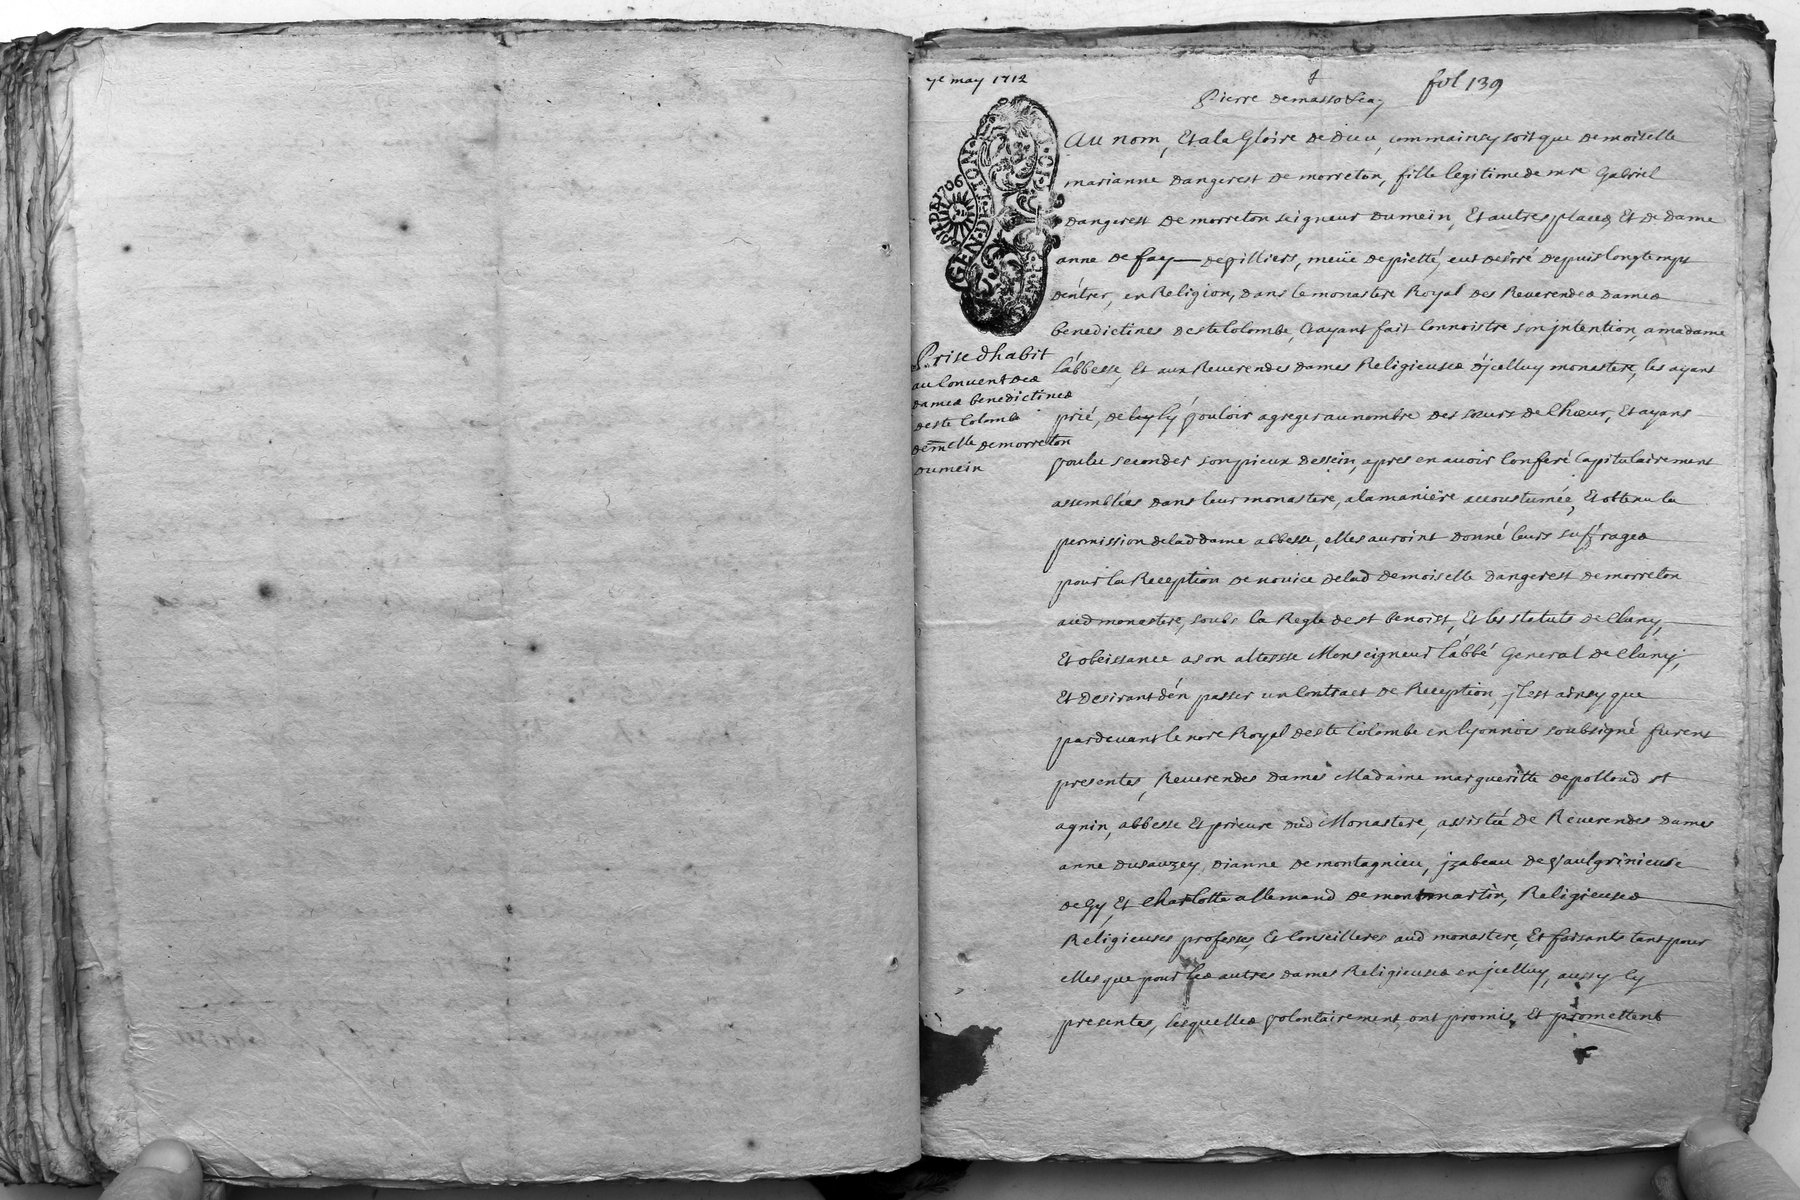 7e may 1712
fol 139
Pierre
Au nom, Et a la Gloire de Dieu, comm ainsy soit que demoiselle
marianne dangerest de morreton, fille legitime de mre Gabriel
dangerest de morreton seigneur dumein, Et autres places, Et de dame
anne de fay de villiers, meüe de pietté, eut desiré depuis longtemps
déntrer, en Religion, dans le monastere Royal des Reuerendes dames
benedictines de ste Colombe, Et ayant fait Connoistre son jntention, a madame
Labbesse, Et aux Reuerendes dames Religieuses djcelluy monastere, les ayant
prié, de luy ly vouloir agreger au nombre des sœurs de Chœur, Et ayans
voulu seconder son pieux dessein, apres en auoir Conferé Capitulairement
assemblées dans leur monastere, a la maniere accoustumée, Et obtenu la
permission de lad dame abbesse, elles auroint donné leurs suffrages
pour la Reception de nouice de lad demoiselle dangerest de morreton
aud monastere, soubs la Regle de st benoist, Et les statuts de Cluny,
Et obeissance a son altesse Monseigneur Labbé General de Cluny,
Et desirant dén passer un Contract de Reception, jl est ainsy que
pardeuant le nore Royal de ste Colombe en lyonnois soubsigné furent
presentes, Reuerendes dames Madame margueritte de polloud st
agnin, abbesse Et prieure dud Monastere, assistée de Reuerendes dames
anne dusauzey, dianne de montagnieu, jzabeau de vaulgrinieuse
de Gy, Et Charlotte allemand de montmartin, Religieuses
Religieuses professes, Et Conseilleres aud monastere, Et faisants tant pour
elles que pour les autres dames Religieuses en jcelluy, aussy ly
presentes, lesquelles volontairement, ont promis, Et promettent
Prise dhabit
au Conuent des
dames benedictines
de ste Colombe
demelle de morreton
dumein
GEN·DE·LION
1706